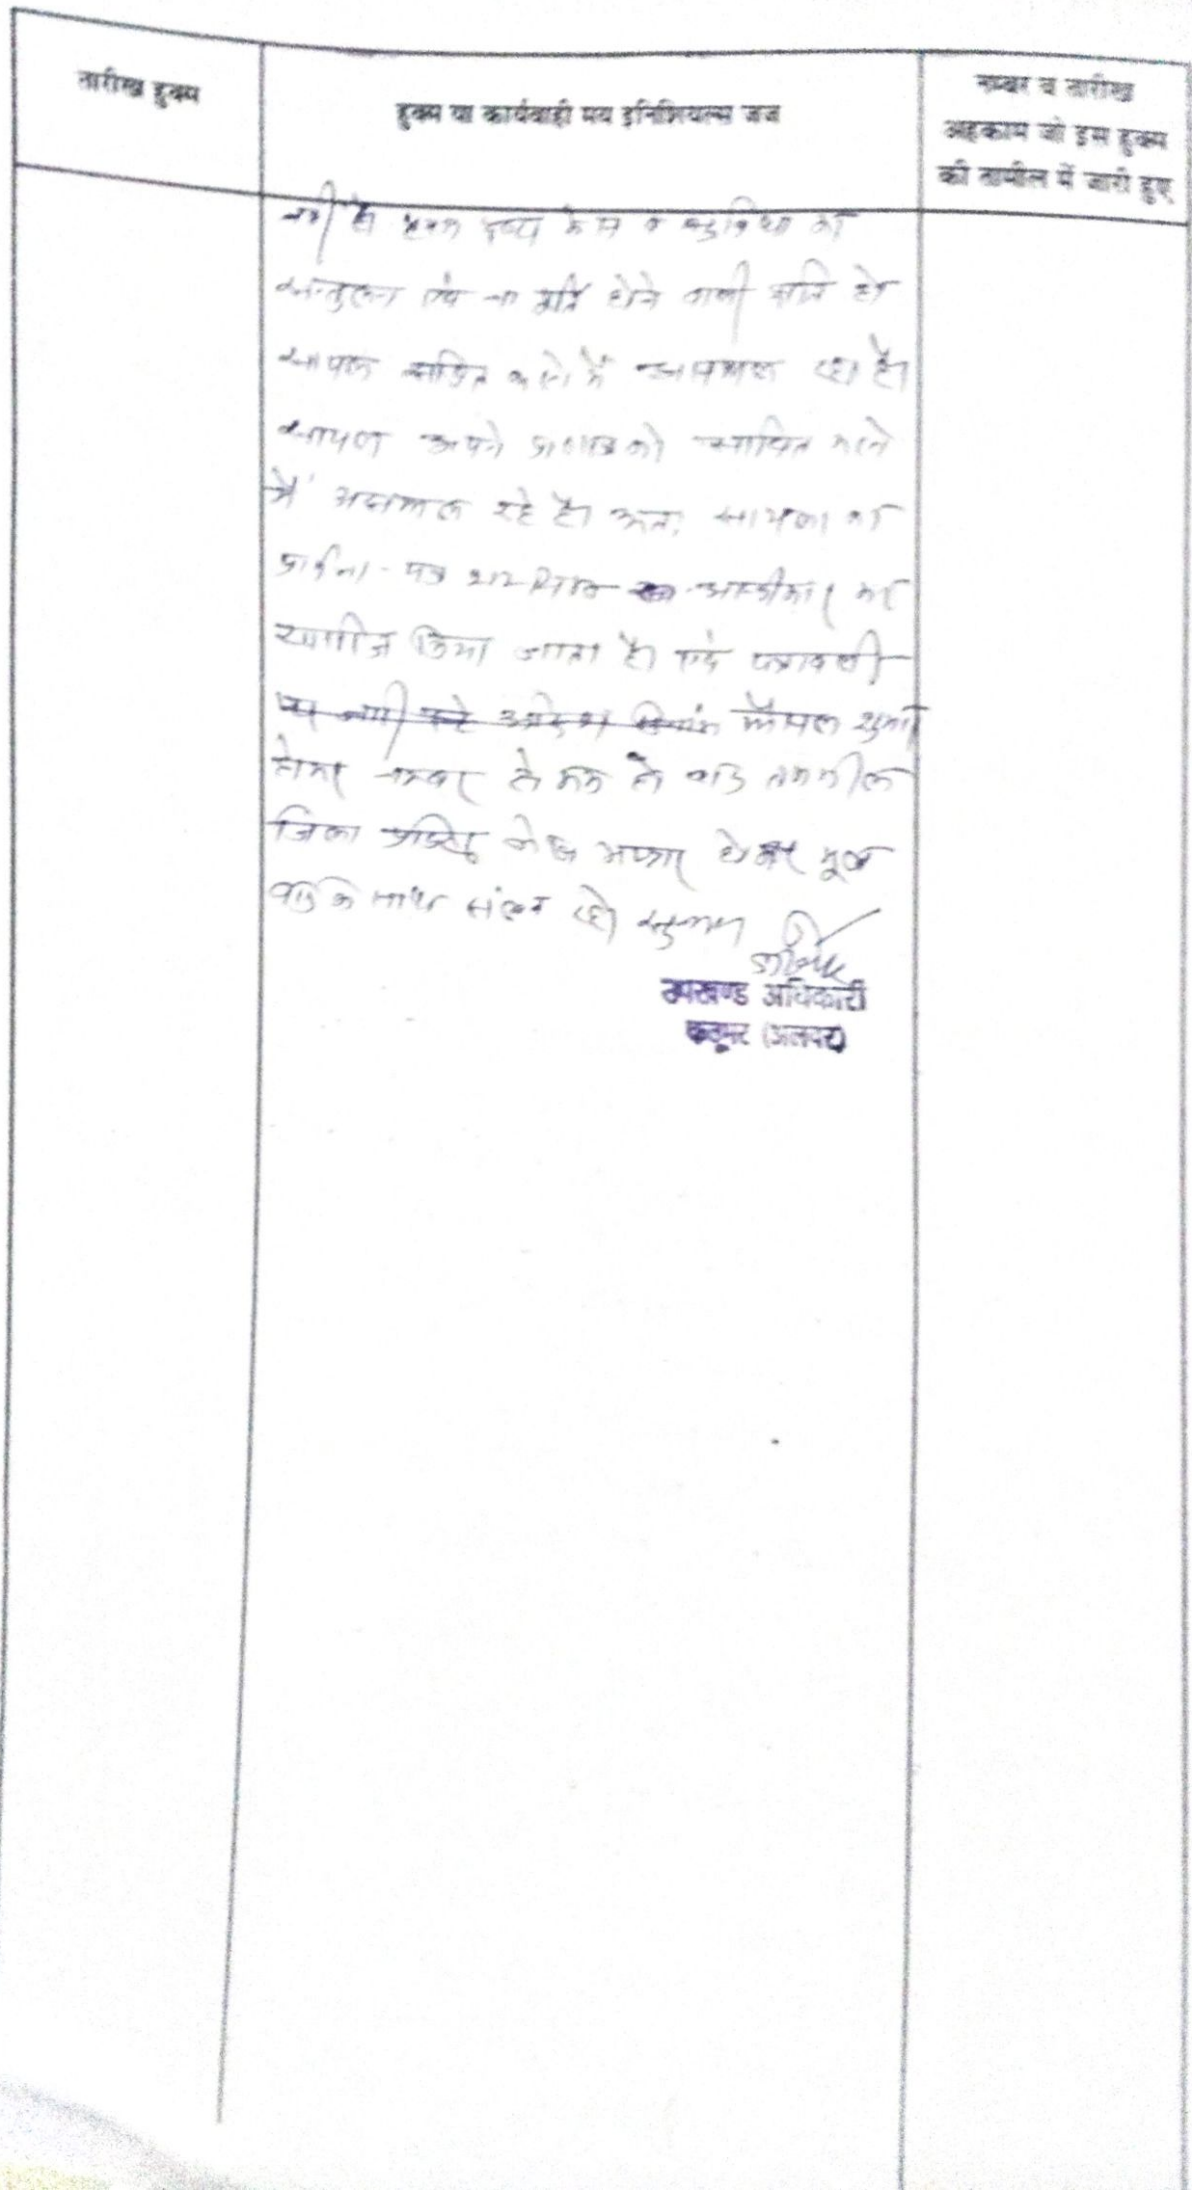 तारीख हुक्म
हुक्म या कार्यवाही मय इनिशियल्स जज
नम्बर व तारीख
अहकाम जो इस हुक्म
की तामील में जारी हुए
नहीं है। प्रथम दृष्टया केस व सुविधा का
सन्तुलन एवं ना पूर्ति होने वाली क्षति को
सायल साबित करने में असफल रहा है।
सायल अपने प्रा०पत्र को साबित करने
में असफल रहे है। अतः सायल का
प्रार्थना-पत्र अस्वीकार कर
खारीज किया जाता है। एवं पत्रावली
फैसल शुमार
होकर नम्बर से कम हो बाद तकमील
जिला मूल
वाद के साथ संलग्न रहे।
उपखण्ड अधिकारी
कठूमर (अलवर)